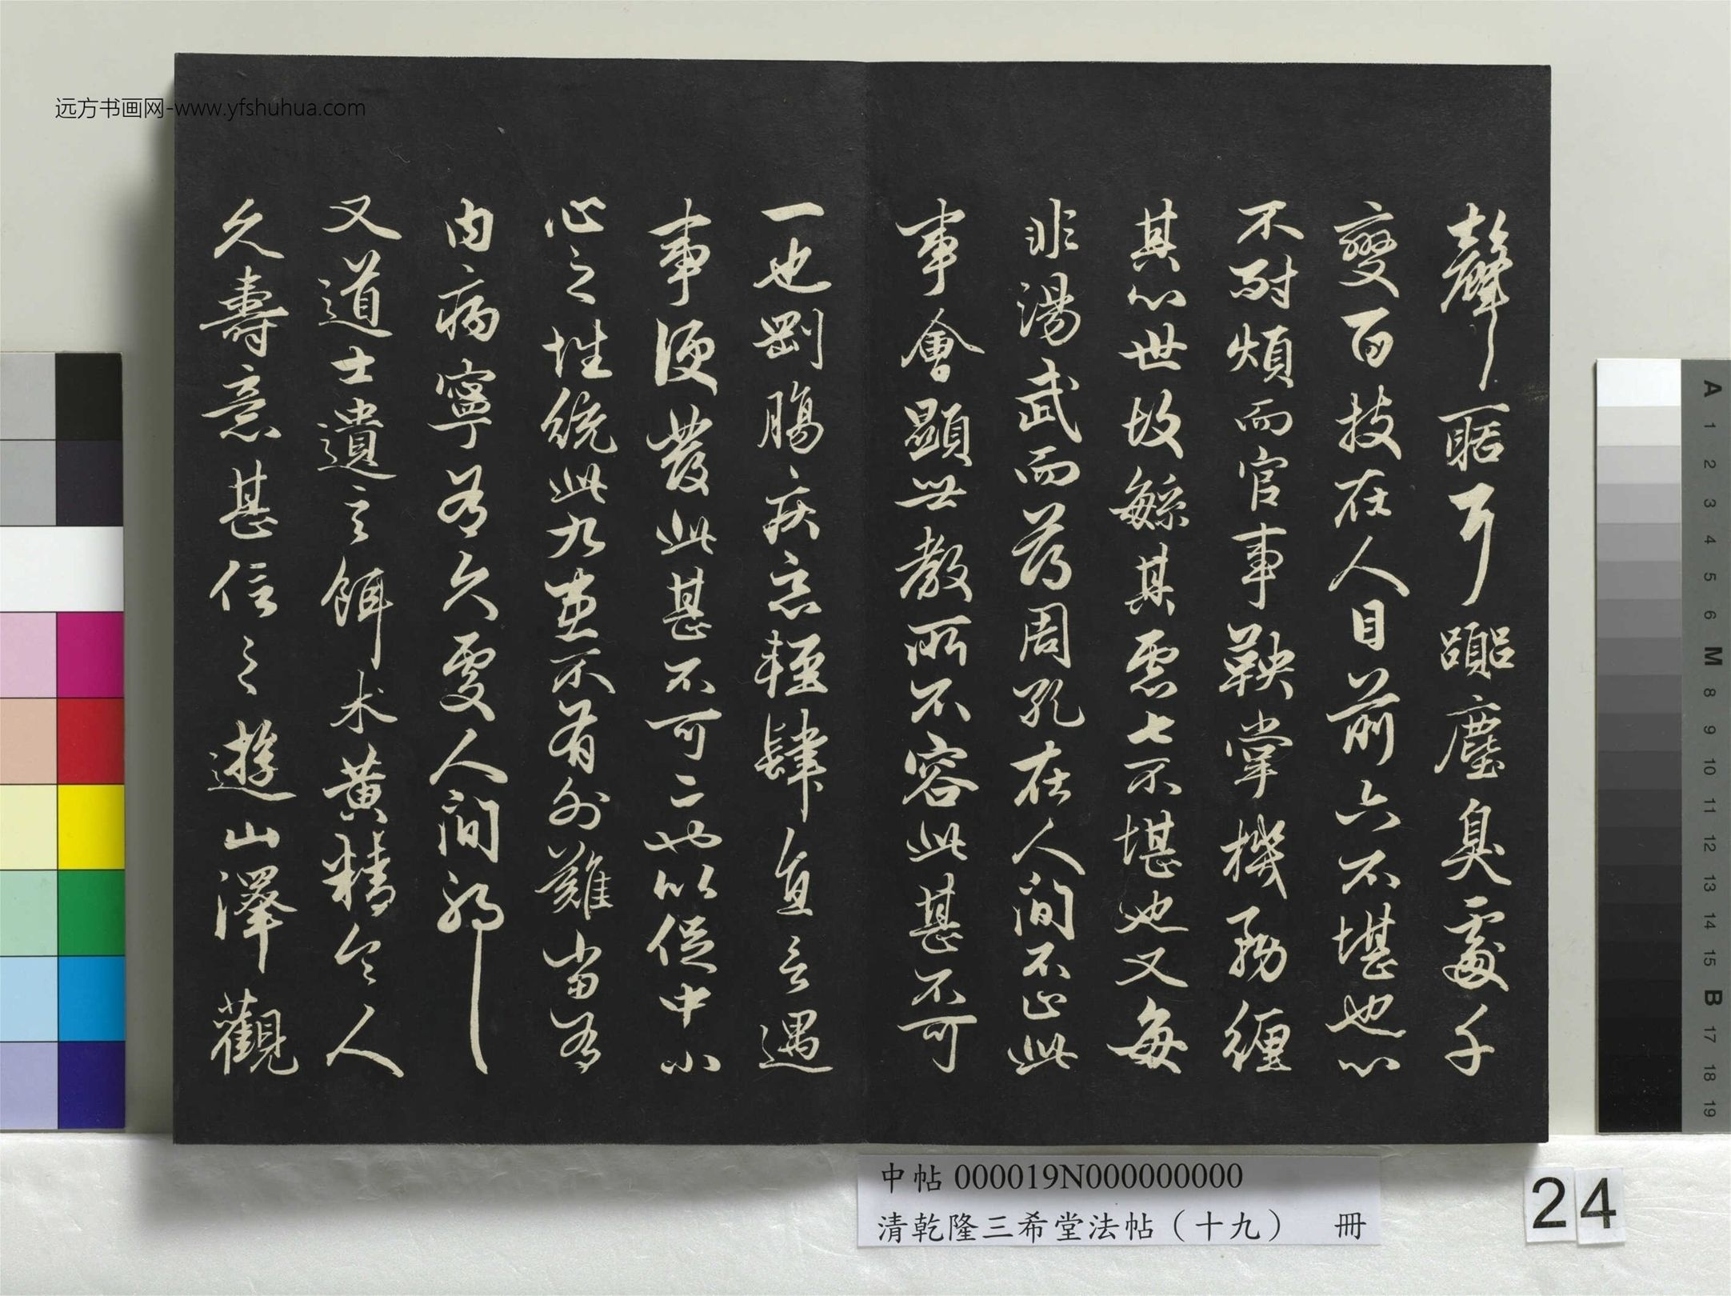 远方书画网-www.yfshuhua.com
聲聒耳囂塵臭處千
變百技在人目前六不堪也心
不耐煩而官事鞅掌機務纏
其心世故繇其慮七不堪也又每
非湯武而薄周孔在人間不止此
事會顯世教所不容此甚不可
一也剛腸疾惡輕肆直言遇
事便發此甚不可二也以促中小
心之性統此九患不有外難當有
內病寧可久處人間邪
又道士遺言餌朮黃精令人
久壽意甚信之遊山澤觀
中帖 000019N000000000
清乾隆三希堂法帖（十九） 冊
24
A
1
2
3
4
5
6
M
8
9
10
11
12
13
14
15
B
17
18
19